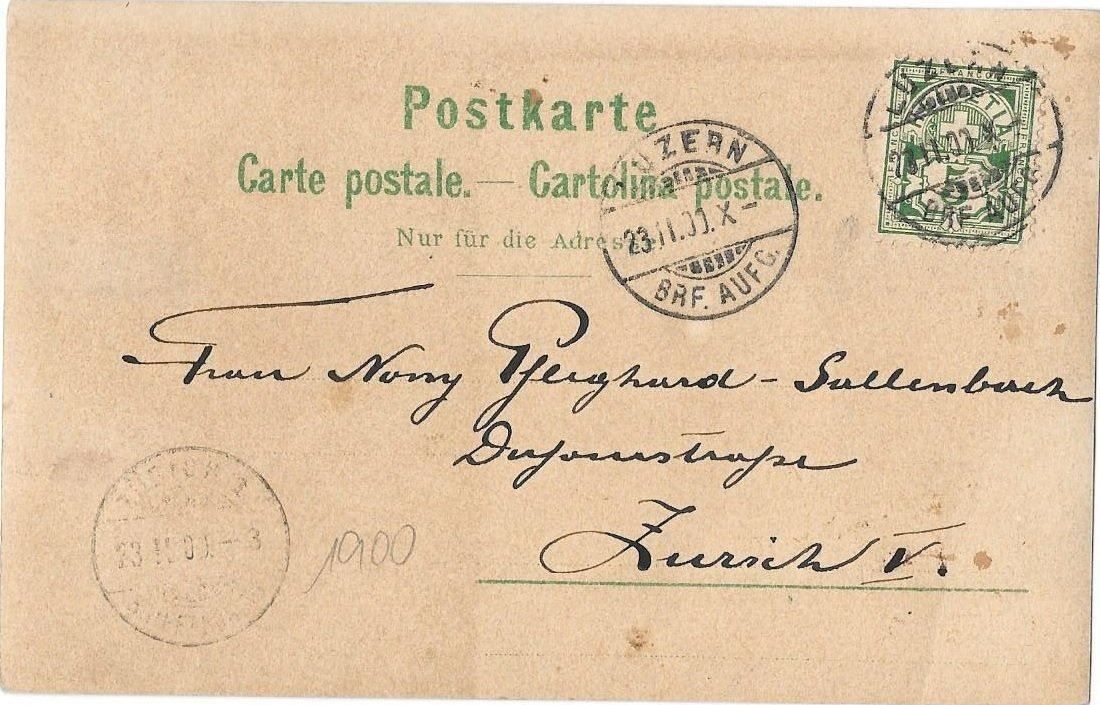 Postkarte
Carte postale. — Cartolina postale.
Nur für die Adresse
LUZERN
23.II.00.X–
BRF. AUFG.
LUZERN
II.00.X
BRF. AUFG.
FRANCO
HELVETIA
5
Frau Nony Pfleghard - Sallenbach
Zürich V.
23.II.00.–3
1900